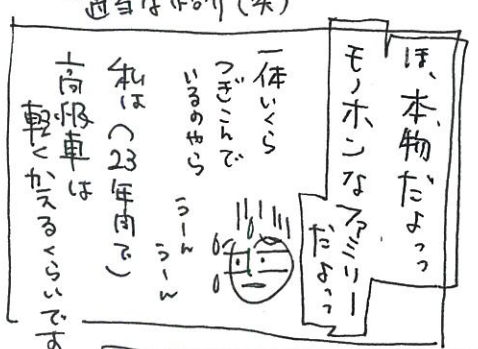 適当な
(笑)
ほ、本物だよっっ
モノホンなファミリー
だよっっ
一体いくら
つぎこんで
いるのやら
うーん
うーん
私は(23年間で)
高級車は
軽くかえるくらいです